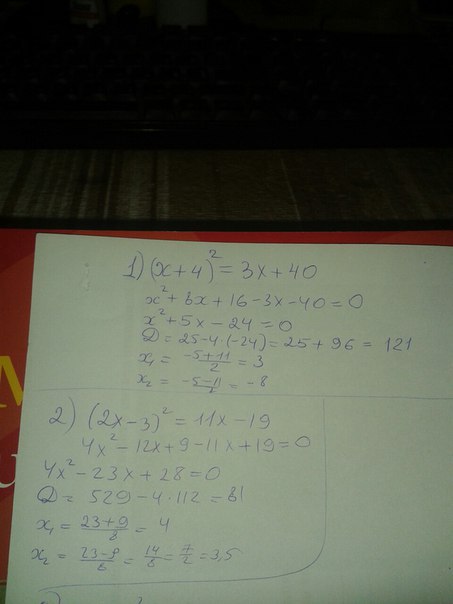 1) (x+4)² = 3x+40
x²+8x+16-3x-40=0
x²+5x-24=0
D = 25-4·(-24) = 25+96 = 121
x₁ = (-5+11)/2 = 3
x₂ = (-5-11)/2 = -8
2) (2x-3)² = 11x-19
4x²-12x+9-11x+19=0
4x²-23x+28=0
D = 529-4·112 = 81
x₁ = (23+9)/8 = 4
x₂ = (23-9)/8 = 14/8 = 7/2 = 3,5